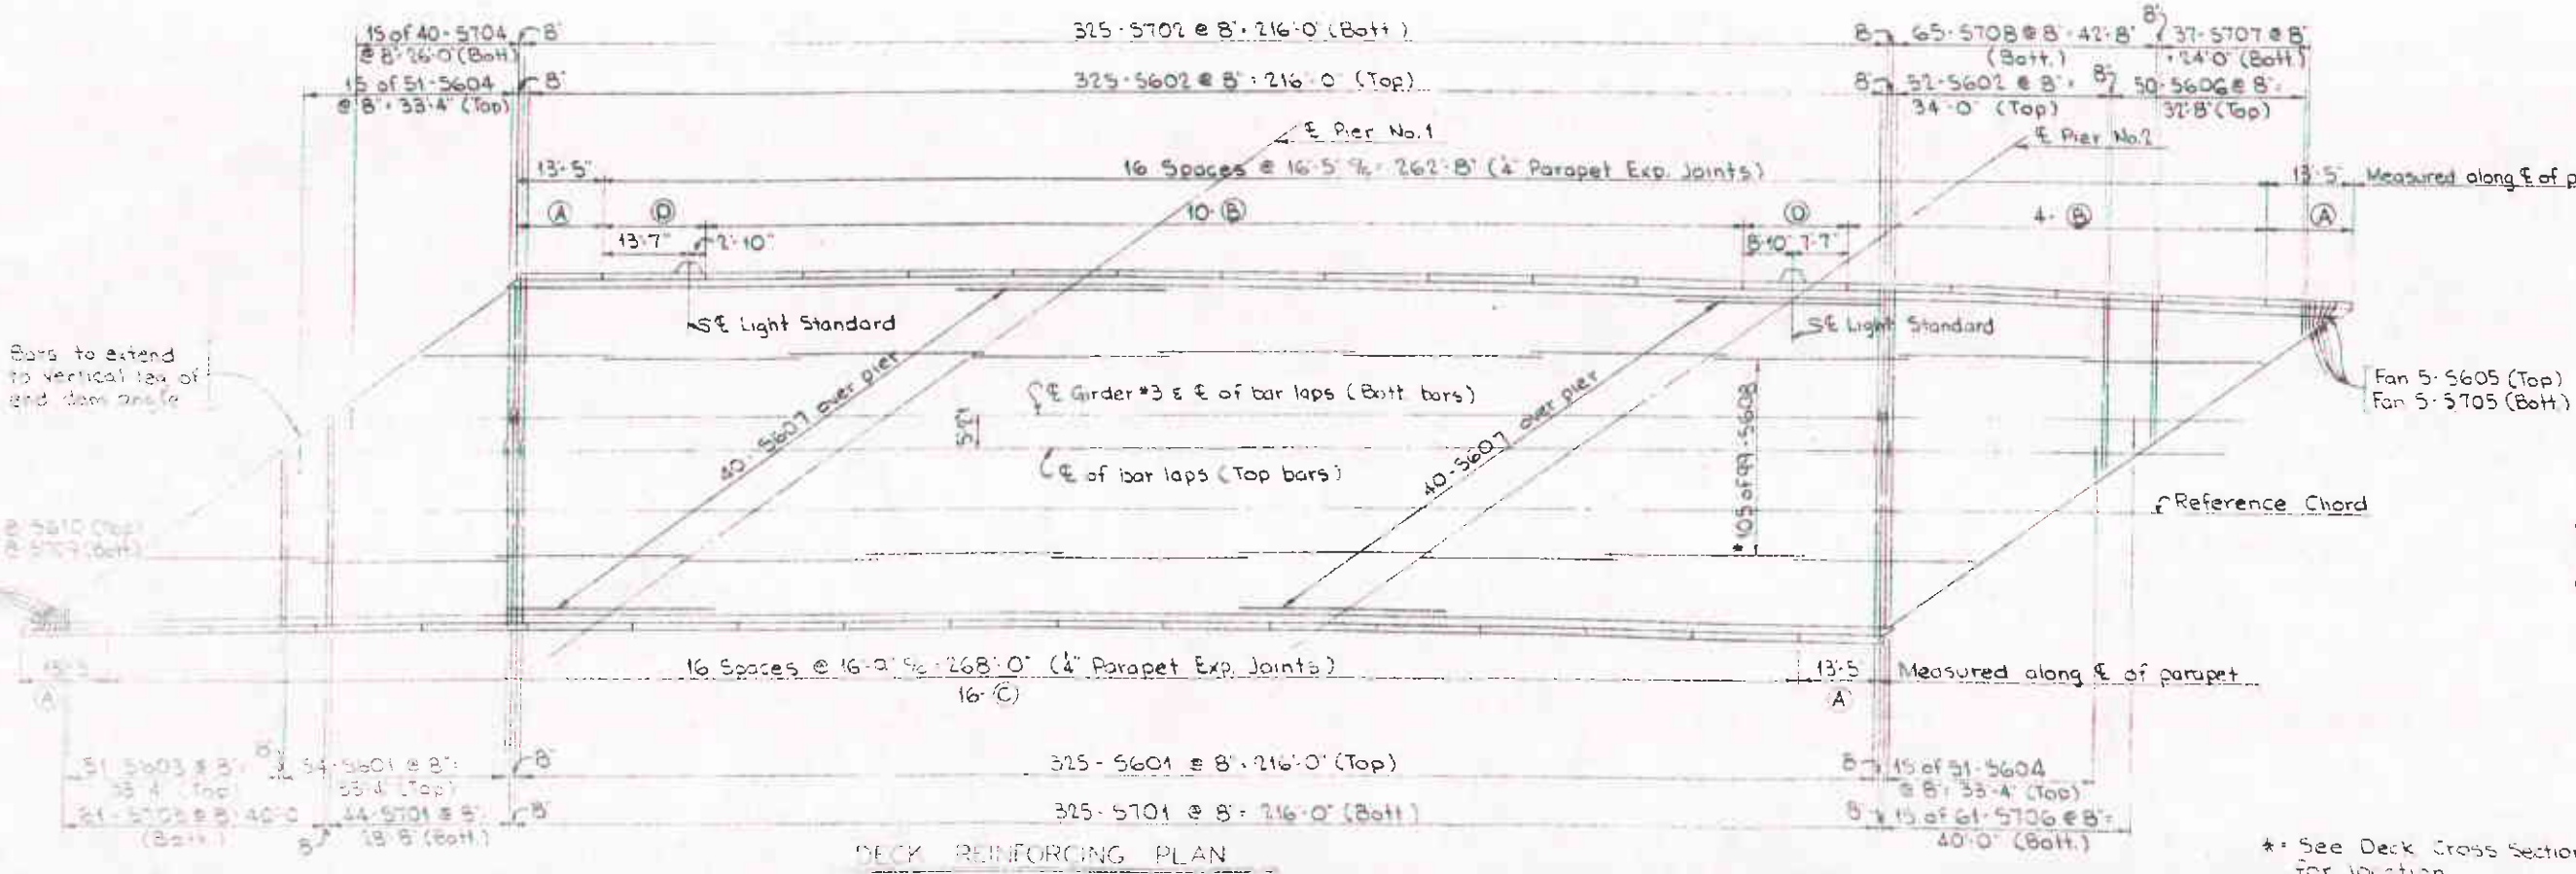 15 of 40-5704
@ 8"·26'-0 (Bott)
8"
325-5702 @ 8"·216'-0" (Bott)
8"
65-5708 @ 8"·42'-8"
(Bott.)
8"
37-5707 @ 8"
·24'0" (Bott.)
15 of 51-5604
@ 8"·33'-4" (Top)
8"
325-5602 @ 8"·216'-0" (Top)
8"
52-5602 @ 8"·
34'-0" (Top)
8"
50-5606 @ 8"·
32'8" (Top)
℄ Pier No.1
℄ Pier No.2
13'-5"
16 Spaces @ 16'-5" c/c · 262'-8" (¼" Parapet Exp. Joints)
13'-5"
Measured along ℄ of p
A
D
10-B
D
4-B
A
13'-7"
2'-10"
8'-10"
7'-7"
℄ Light Standard
℄ Light Standard
Bars to extend
to vertical leg of
end dam angle
40-5607 over pier
℄ Girder #3 & ℄ of bar laps (Bott bars)
℄ of bar laps (Top bars)
40-5607 over pier
*105 of 99-5608
Fan 5-5605 (Top)
Fan 5-5705 (Bott.)
Reference Chord
5610 (Top)
(Bott)
16 Spaces @ 16'-9" c/c · 268'-0" (¼" Parapet Exp. Joints)
13'-5
Measured along ℄ of parapet
(A)
16-C
A
51-5603 @ 8"·
33'-4" (Top)
8"
54-5601 @ 8"·
(Top)
8"
325-5601 @ 8"·216'-0" (Top)
8"
15 of 51-5604
@ 8"·33'-4" (Top)
@ 8"·40'-0
(Bott.)
8"
44-5701 @ 8"·
28'-8" (Bott.)
8"
325-5701 @ 8"·216'-0" (Bott)
8"
15 of 61-5706 @ 8"·
40'-0" (Bott.)
DECK REINFORCING PLAN
*· See Deck Cross Section
for location